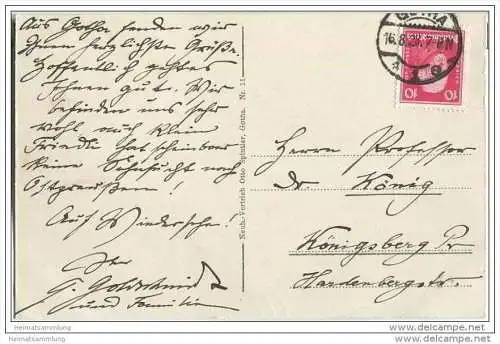 Aus Gotha senden wir
Ihnen herzlichste Grüße.
Hoffentlich geht es
Ihnen gut. Wir
befinden uns sehr
wohl auch klein
Friedli hat scheinbar
keine Sehnsucht nach
Ostpreußen!
Auf Wiedersehn!
Ihr
G. Goldschmidt
und Familie
Neuh.-Vertrieb Otto Spittler, Gotha. Nr. 11
GOTHA
16.8.29.
10 10
Herrn Professor
Dr. König
Königsberg Pr
Hardenbergstr.
Heimatsammlung
http://www.heimatsammlung.de